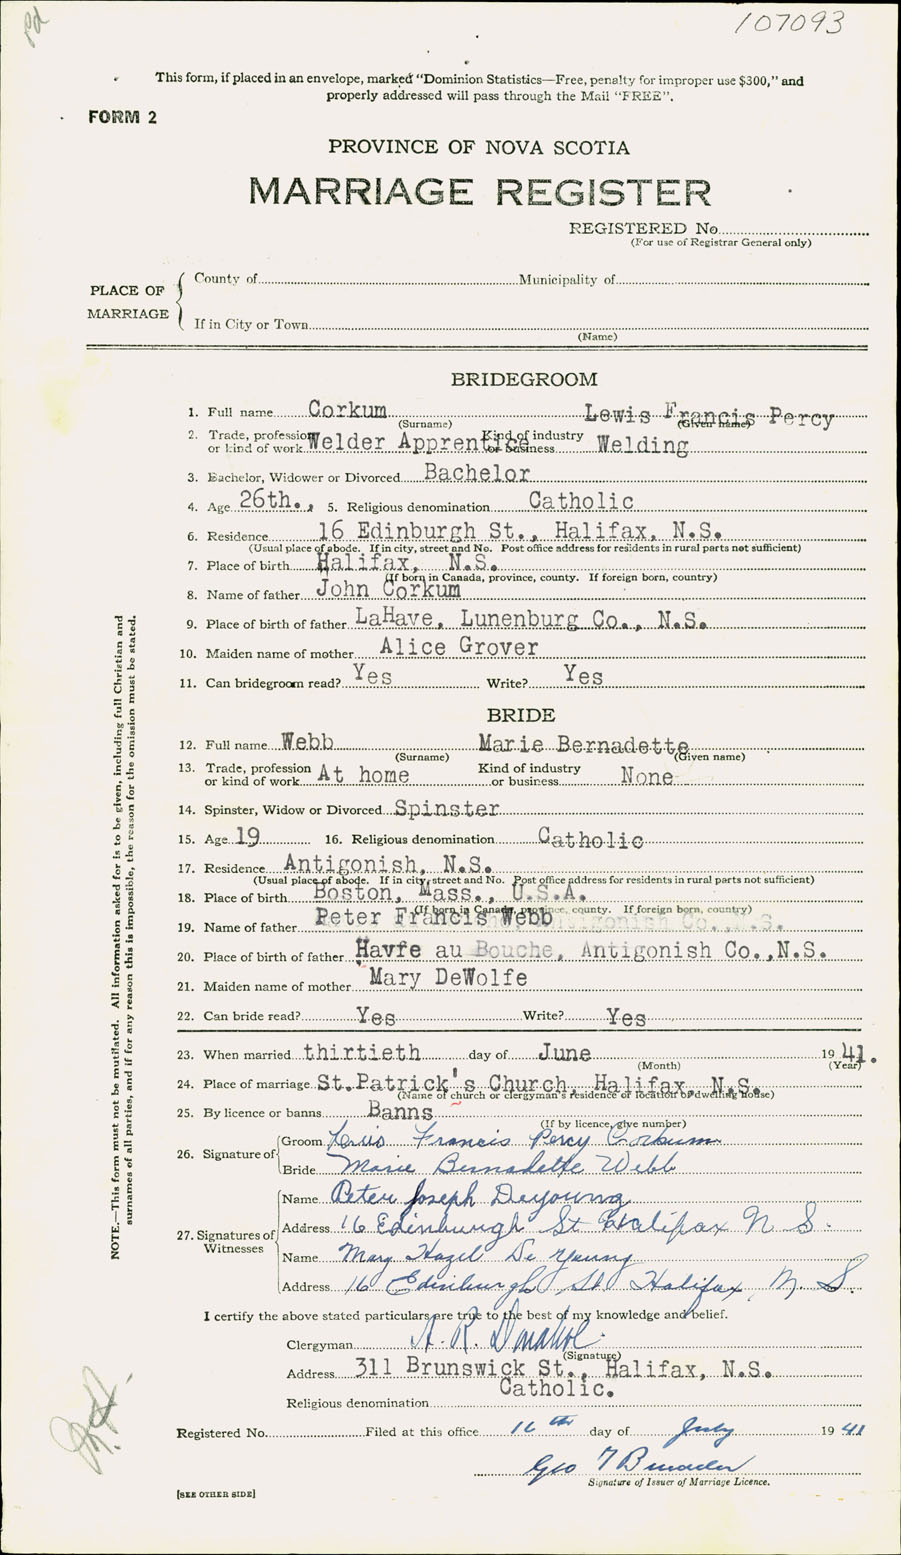 Pd
107093
This form, if placed in an envelope, marked "Dominion Statistics—Free, penalty for improper use $300," and
properly addressed will pass through the Mail "FREE".
FORM 2
PROVINCE OF NOVA SCOTIA
MARRIAGE REGISTER
REGISTERED No.
(For use of Registrar General only)
PLACE OF MARRIAGE
County of Municipality of
If in City or Town
(Name)
BRIDEGROOM
1. Full name Corkum Lewis Francis Percy
(Surname) (Given name)
2. Trade, profession or kind of work Welder Apprentice Kind of industry or business Welding
3. Bachelor, Widower or Divorced Bachelor
4. Age 26th., 5. Religious denomination Catholic
6. Residence 16 Edinburgh St., Halifax, N.S.
(Usual place of abode. If in city, street and No. Post office address for residents in rural parts not sufficient)
7. Place of birth Halifax, N.S.
(If born in Canada, province, county. If foreign born, country)
8. Name of father John Corkum
9. Place of birth of father LaHave, Lunenburg Co., N.S.
10. Maiden name of mother Alice Grover
11. Can bridegroom read? Yes Write? Yes
BRIDE
12. Full name Webb Marie Bernadette
(Surname) (Given name)
13. Trade, profession or kind of work At home Kind of industry or business None
14. Spinster, Widow or Divorced Spinster
15. Age 19 16. Religious denomination Catholic
17. Residence Antigonish, N.S.
(Usual place of abode. If in city, street and No. Post office address for residents in rural parts not sufficient)
18. Place of birth Boston, Mass., U.S.A.
(If born in Canada, province, county. If foreign born, country)
19. Name of father Peter Francis Webb
20. Place of birth of father Havre au Bouche, Antigonish Co.,N.S.
21. Maiden name of mother Mary DeWolfe
22. Can bride read? Yes Write? Yes
23. When married thirtieth day of June 1941.
(Month) (Year)
24. Place of marriage St.Patrick's Church, Halifax, N.S.
(Name of church or clergyman's residence or location of dwelling house)
25. By licence or banns Banns
(If by licence, give number)
26. Signature of
Groom Lewis Francis Percy Corkum
Bride Marie Bernadette Webb
27. Signatures of Witnesses
Name Peter Joseph Deyoung
Address 16 Edinburgh St Halifax N S.
Name Mary Hazel De Young
Address 16 Edinburgh St Halifax, N. S.
I certify the above stated particulars are true to the best of my knowledge and belief.
Clergyman A. R. Donahoe
(Signature)
Address 311 Brunswick St., Halifax, N.S.
Catholic.
Religious denomination
Registered No. Filed at this office 16th day of July 1941
Geo
Signature of Issuer of Marriage Licence.
[SEE OTHER SIDE]
NOTE.—This form must not be mutilated. All information asked for is to be given, including full Christian and
surnames of all parties, and if for any reason this is impossible, the reason for the omission must be stated.